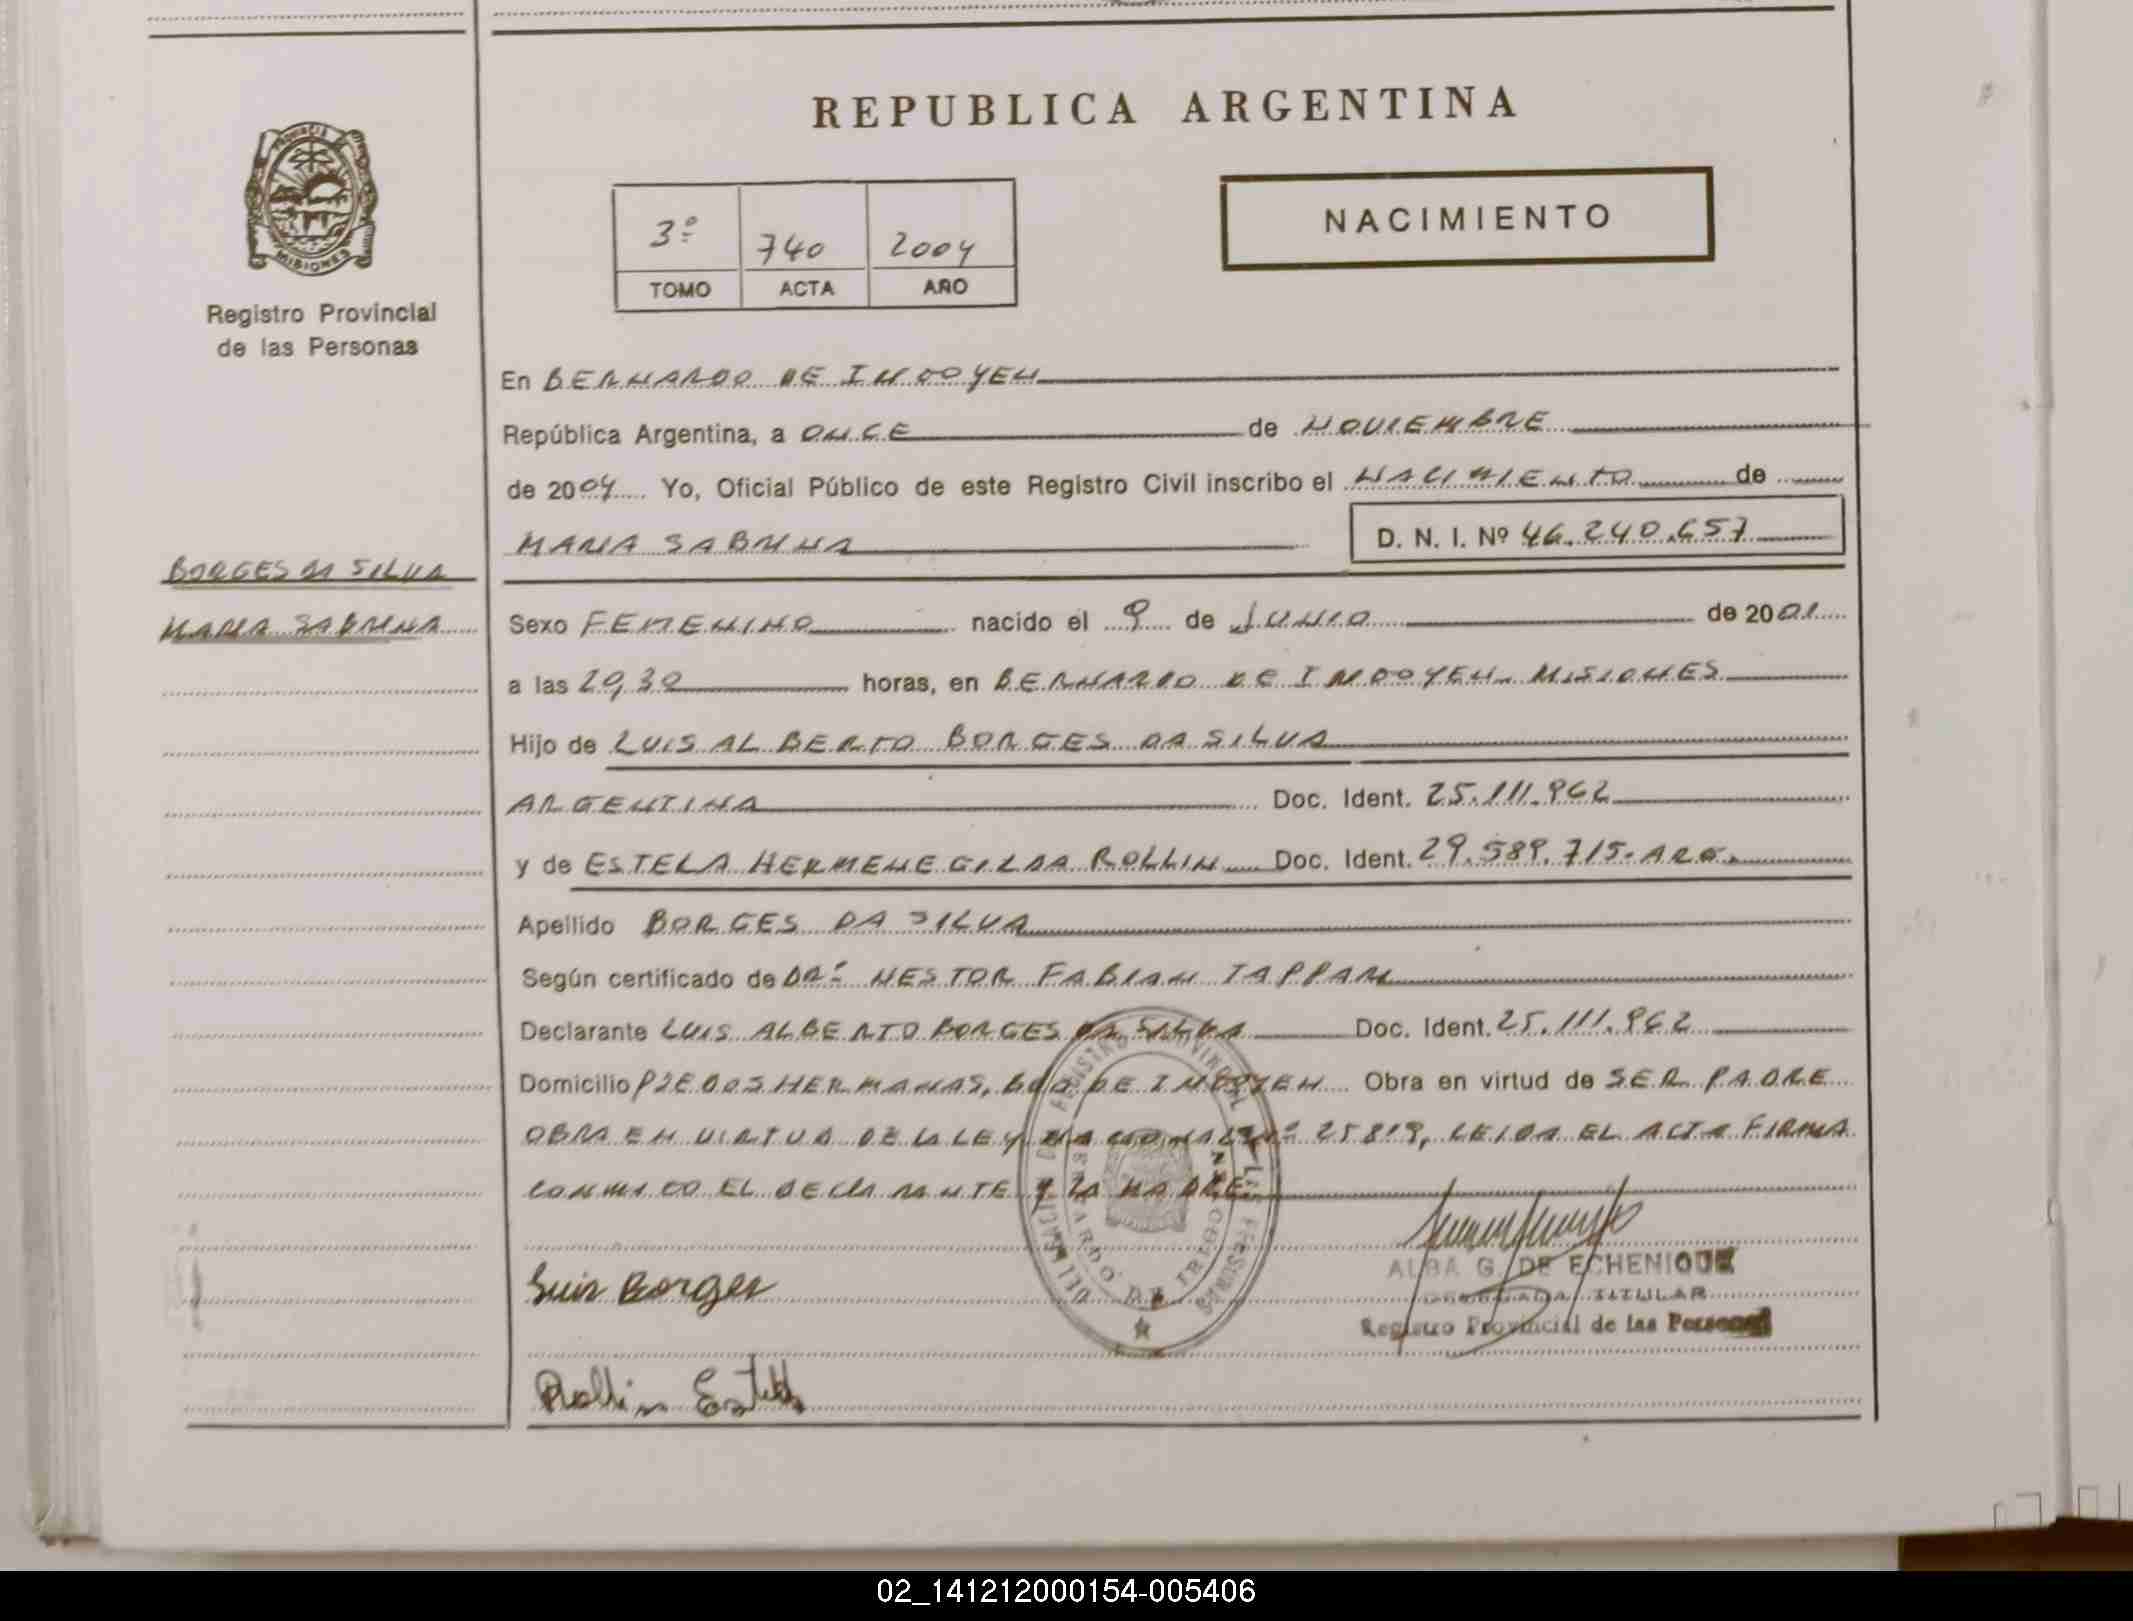 REPUBLICA ARGENTINA
PROVINCIA
MISIONES
Registro Provincial
de las Personas
3º 740 2004
TOMO ACTA AÑO
NACIMIENTO
En BERNARDO DE IRIGOYEN
República Argentina, a ONCE de NOVIEMBRE
de 2004 Yo, Oficial Público de este Registro Civil inscribo el NACIMIENTO de
MARIA SABRINA D. N. I. Nº 46.240.657
BORGES DA SILVA
MARIA SABRINA
Sexo FEMENINO nacido el 9 de JUNIO de 2001
a las 20,30 horas, en BERNARDO DE IRIGOYEN MISIONES
Hijo de LUIS ALBERTO BORGES DA SILVA
ARGENTINA Doc. Ident. 25.111.962
y de ESTELA HERMENEGILDA ROLLIN Doc. Ident. 29.589.715- ARG.
Apellido BORGES DA SILVA
Según certificado de DR: NESTOR FABIAN TAPPARI
Declarante LUIS ALBERTO BORGES DA SILVA Doc. Ident. 25.111.962
Domicilio PJE DOS HERMANAS, BDO DE IRIGOYEN Obra en virtud de SER PADRE
OBRA EN VIRTUD DE LA LEY NACIONAL Nº 25819, LEIDA EL ACTA FIRMA
CONMIGO EL DECLARANTE Y LA MADRE
Luis Borges
ALBA G. DE ECHENIQUE
DELEGADA TITULAR
Registro Provincial de las Personas
Rollin Estela
02_141212000154-005406